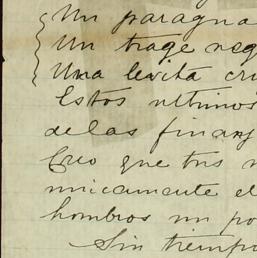 Un paragua
Un trage neg
Una levita cru
Estos ultimos
de las finanz
Creo que tus n
unicamente el
hombros un po
Sin tiempo